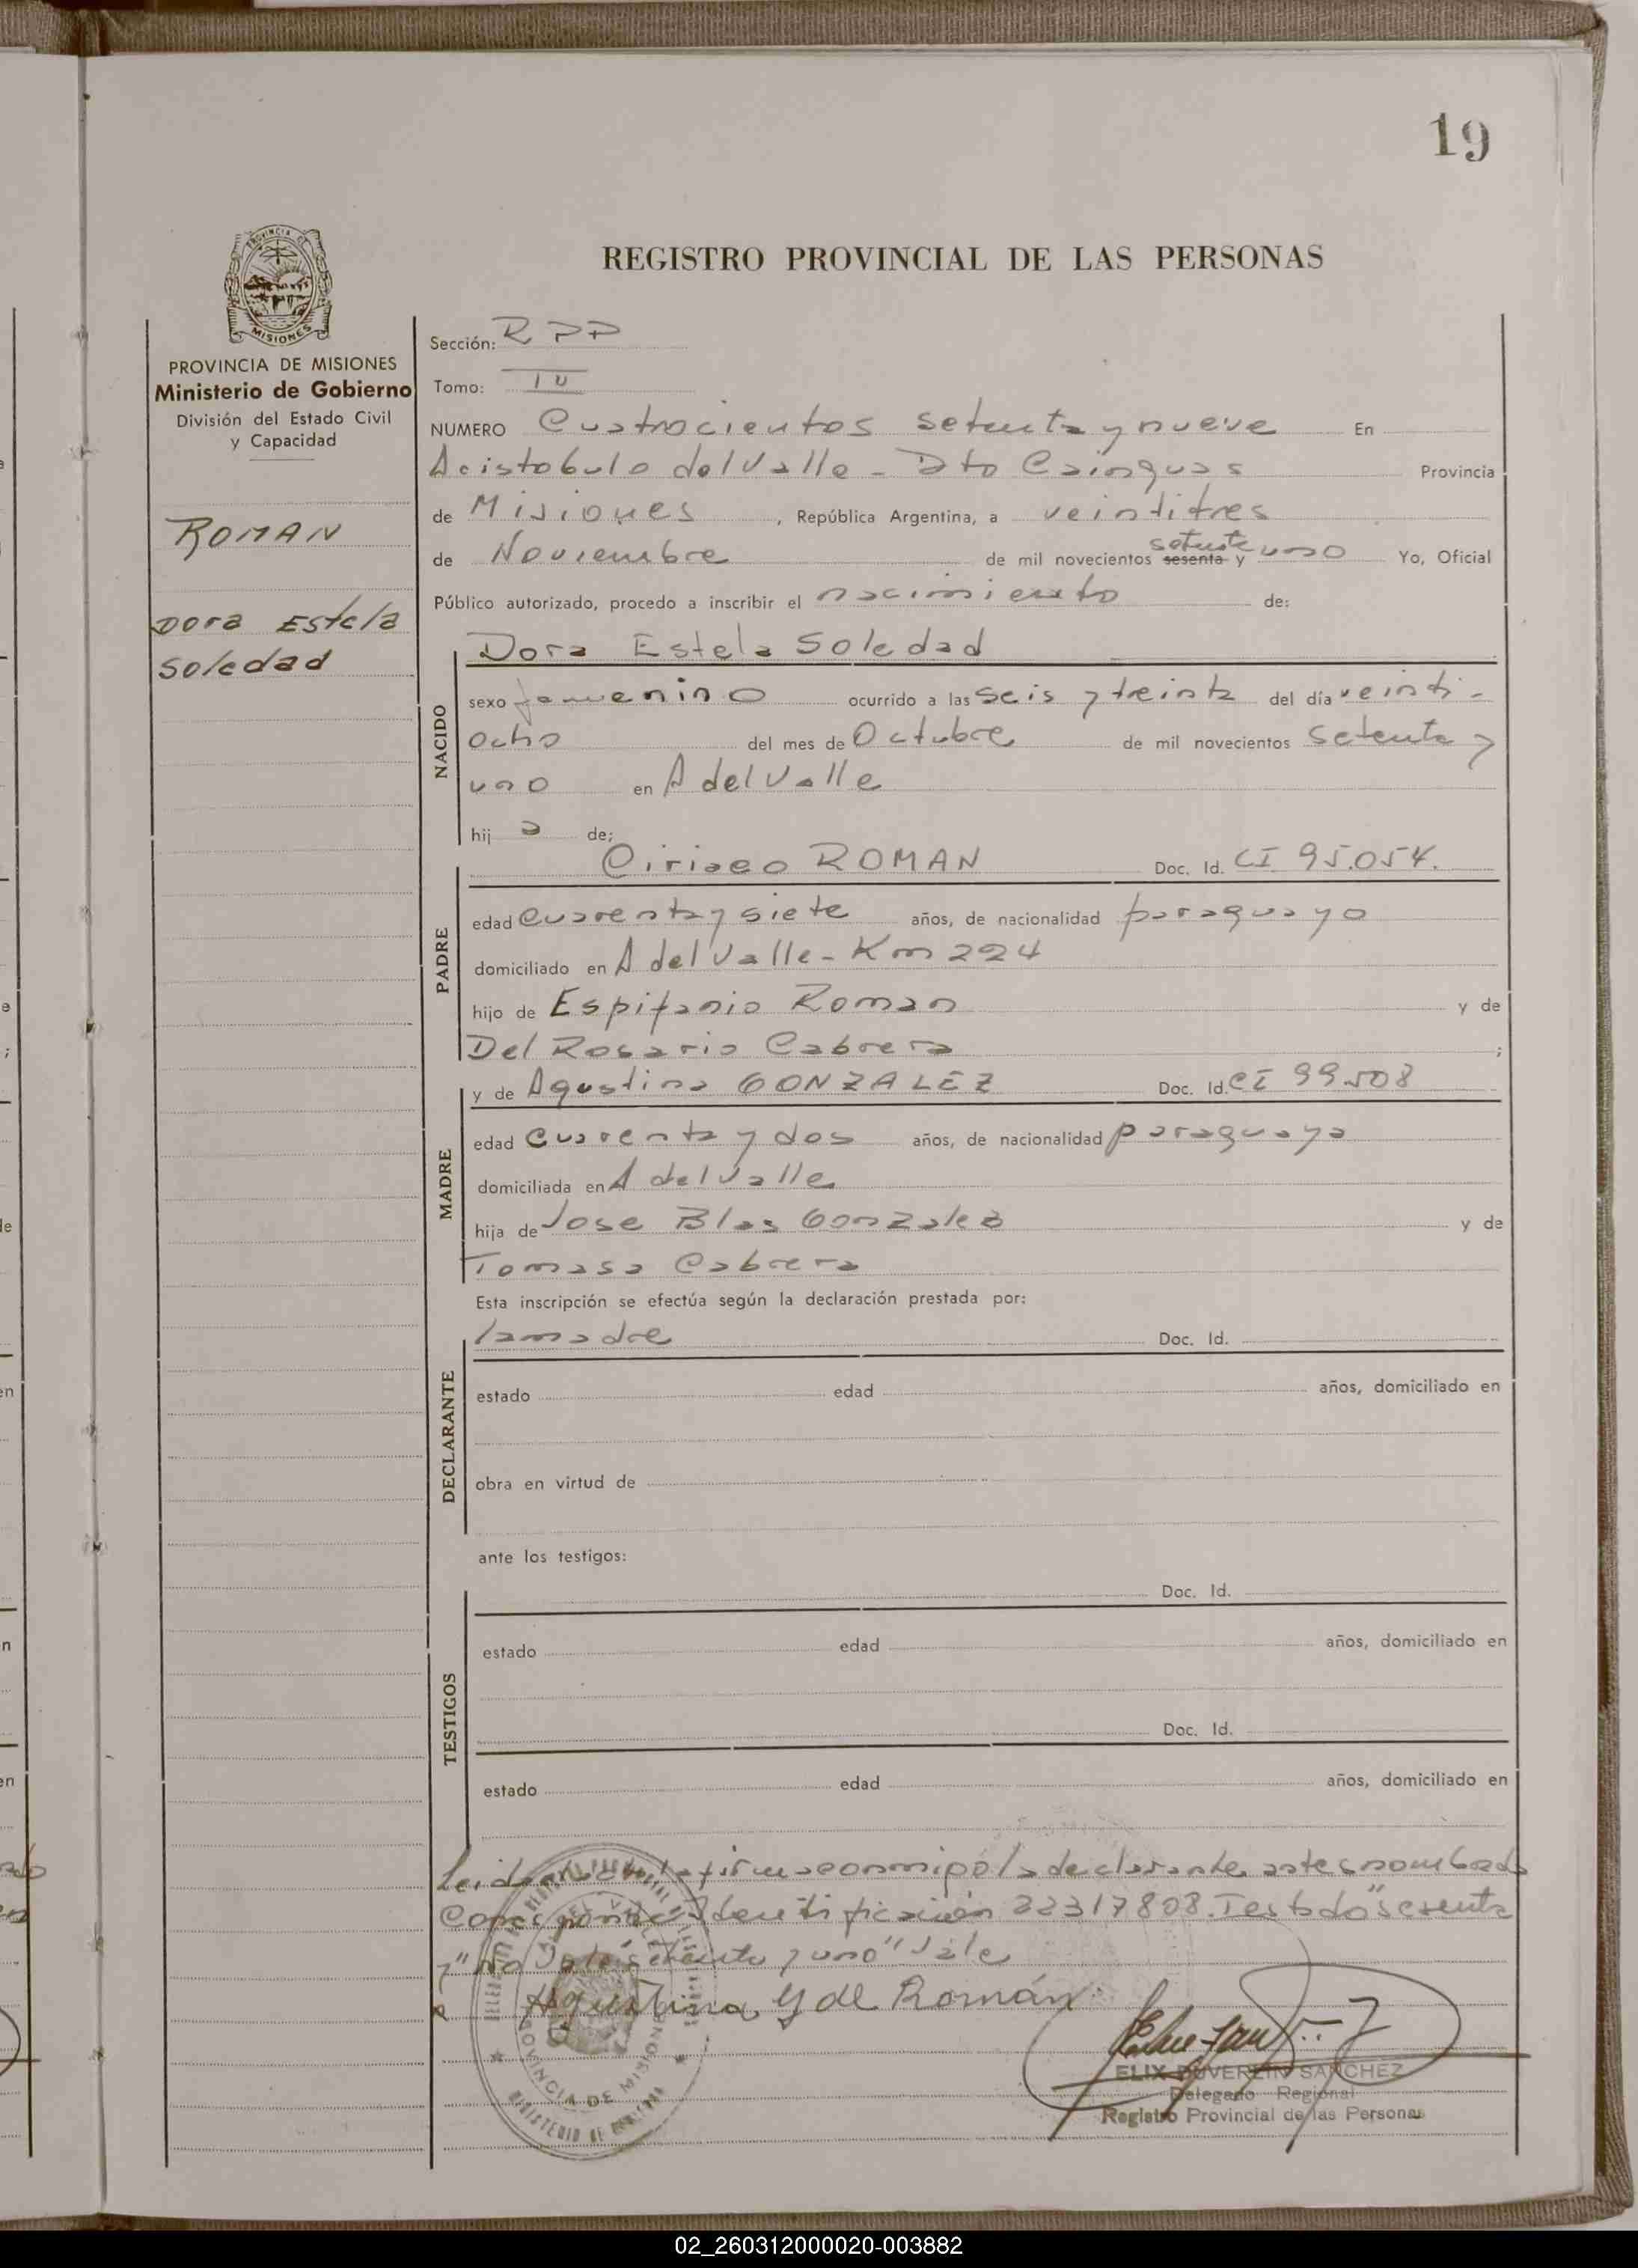 19
PROVINCIA DE MISIONES
Ministerio de Gobierno
División del Estado Civil
y Capacidad
ROMAN
Dora Estela
Soledad
REGISTRO PROVINCIAL DE LAS PERSONAS
Sección: RPP
Tomo:
NUMERO Cuatrocientos setenta y nueve En
Aristobulo del Valle - Dto Cainguas Provincia
de Misiones, República Argentina, a veintitres
de Noviembre de mil novecientos sesenta y setenta uno Yo, Oficial
Público autorizado, procedo a inscribir el nacimiento de:
Dora Estela Soledad
NACIDO
sexo femenino ocurrido a las seis y treinta del día veinti-
ocho del mes de Octubre de mil novecientos setenta y
uno en A del Valle
hij a de:
PADRE
Ciriaco ROMAN Doc. Id. CI 95.054.
edad cuarenta y siete años, de nacionalidad paraguayo
domiciliado en A del Valle - Km 224
hijo de Espifanio Roman y de
Del Rosario Cabrera ;
MADRE
y de Agustina GONZALEZ Doc. Id. CI 99.508
edad cuarenta y dos años, de nacionalidad paraguaya
domiciliada en A del Valle
hija de Jose Blas Gonzalez y de
Tomasa Cabrera
Esta inscripción se efectúa según la declaración prestada por:
DECLARANTE
la madre Doc. Id.
estado edad años, domiciliado en
obra en virtud de
ante los testigos:
TESTIGOS
Doc. Id.
estado edad años, domiciliado en
Doc. Id.
estado edad años, domiciliado en
Leida la firma conmigo la declarante antes nombrada
identificación 22317808. Testado "sesenta
y" No Vale "setenta y uno" Vale
Agustina G de Román
ELIX DUVERLIN SANCHEZ
Delegado Regional
Registro Provincial de las Personas
PROVINCIA DE MISIONES
02_260312000020-003882